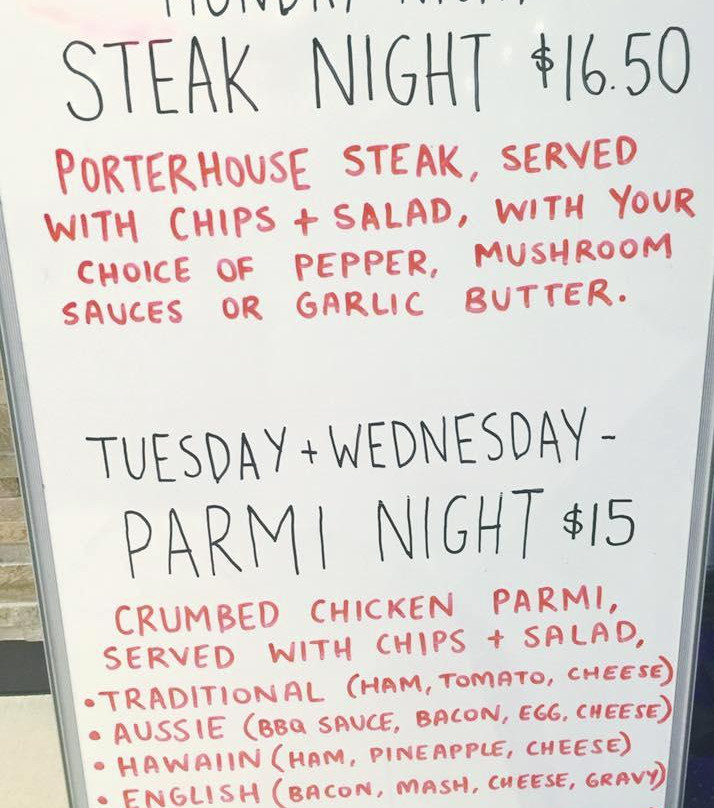 MONDAY NIGHT
STEAK NIGHT $16.50
PORTERHOUSE STEAK, SERVED
WITH CHIPS + SALAD, WITH YOUR
CHOICE OF PEPPER, MUSHROOM
SAUCES OR GARLIC BUTTER.
TUESDAY + WEDNESDAY -
PARMI NIGHT $15
CRUMBED CHICKEN PARMI,
SERVED WITH CHIPS + SALAD,
• TRADITIONAL (HAM, TOMATO, CHEESE)
• AUSSIE (BBQ SAUCE, BACON, EGG, CHEESE)
• HAWAIIN (HAM, PINEAPPLE, CHEESE)
• ENGLISH (BACON, MASH, CHEESE, GRAVY)